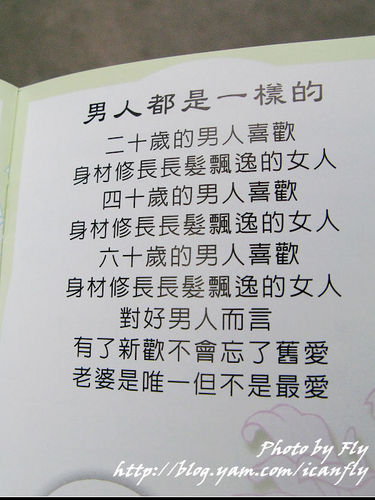 男人都是一樣的
二十歲的男人喜歡
身材修長長髮飄逸的女人
四十歲的男人喜歡
身材修長長髮飄逸的女人
六十歲的男人喜歡
身材修長長髮飄逸的女人
對好男人而言
有了新歡不會忘了舊愛
老婆是唯一但不是最愛
Photo by Fly
http://blog.yam.com/icanfly